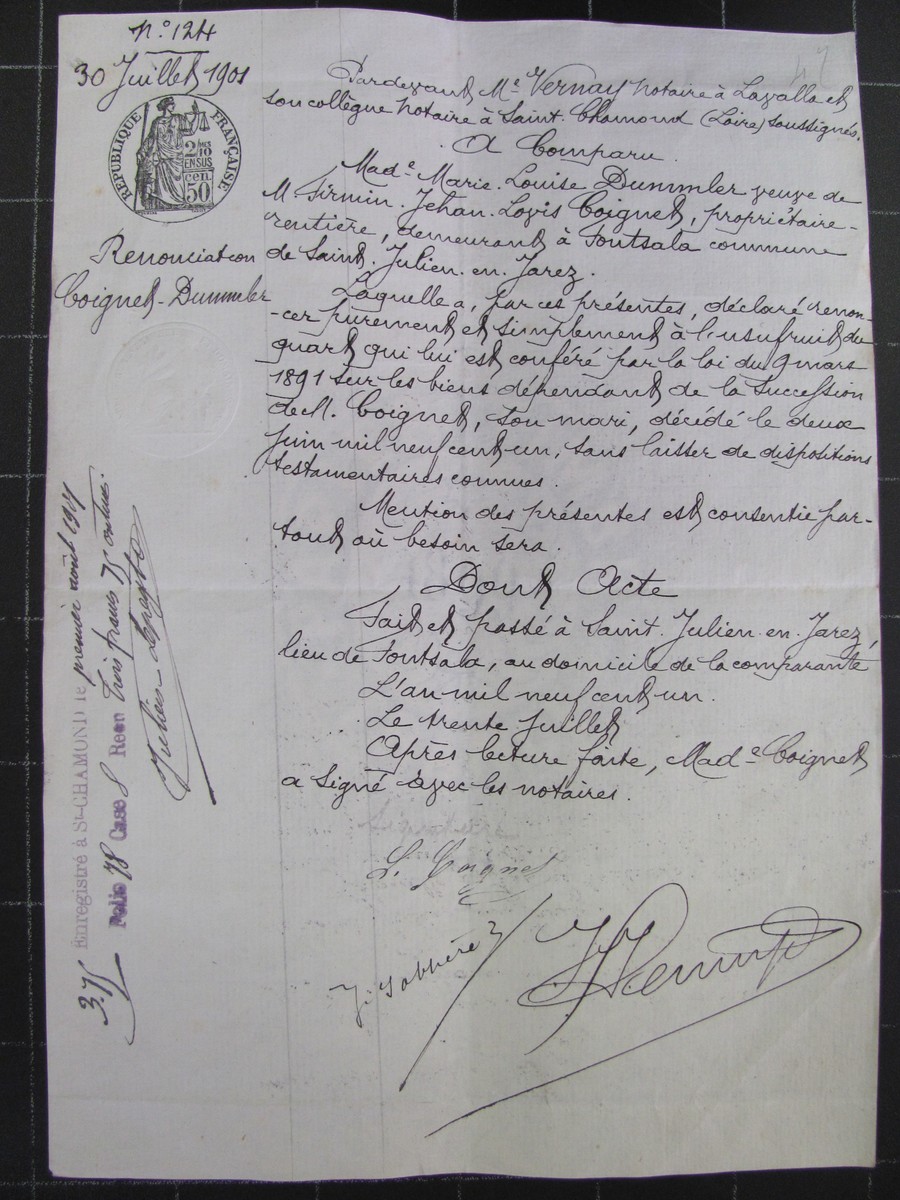 N.° 124
30 Juillet 1901
RÉPUBLIQUE FRANÇAISE
2/10
EN SUS
50 cen
Renonciation
Coignet-Dummler
Pardevant Me Vernay notaire à Lavalla et
son collègue notaire à Saint-Chamond (Loire) soussignés.
A Comparu.
Made Marie-Louise Dummler veuve de
M. Firmin-Jehan-Loyis Coignet, propriétaire-
rentière, demeurant à Fontsala commune
de Saint-Julien-en-Jarez.
Laquelle a, par ces présentes, déclaré renon-
-cer purement et simplement à l'usufruit du
quart qui lui est conféré par la loi du 9 mars
1891 sur les biens dépendant de la succession
de M. Coignet, son mari, décédé le deux
juin mil neuf cent un, sans laisser de dispositions
testamentaires connues.
Mention des présentes est consentie par-
tout où besoin sera.
Dont Acte
Fait et passé à Saint-Julien-en-Jarez,
lieu de Fontsala, au domicile de la comparante
L'an mil neuf cent un.
Le trente Juillet
Après lecture faite, Made Coignet
a signé avec les notaires.
L. Coignet
Enregistré à St-CHAMOND le premier août 1901
Folio 78 Case 8 Reçu trois francs 75 centimes
3.75